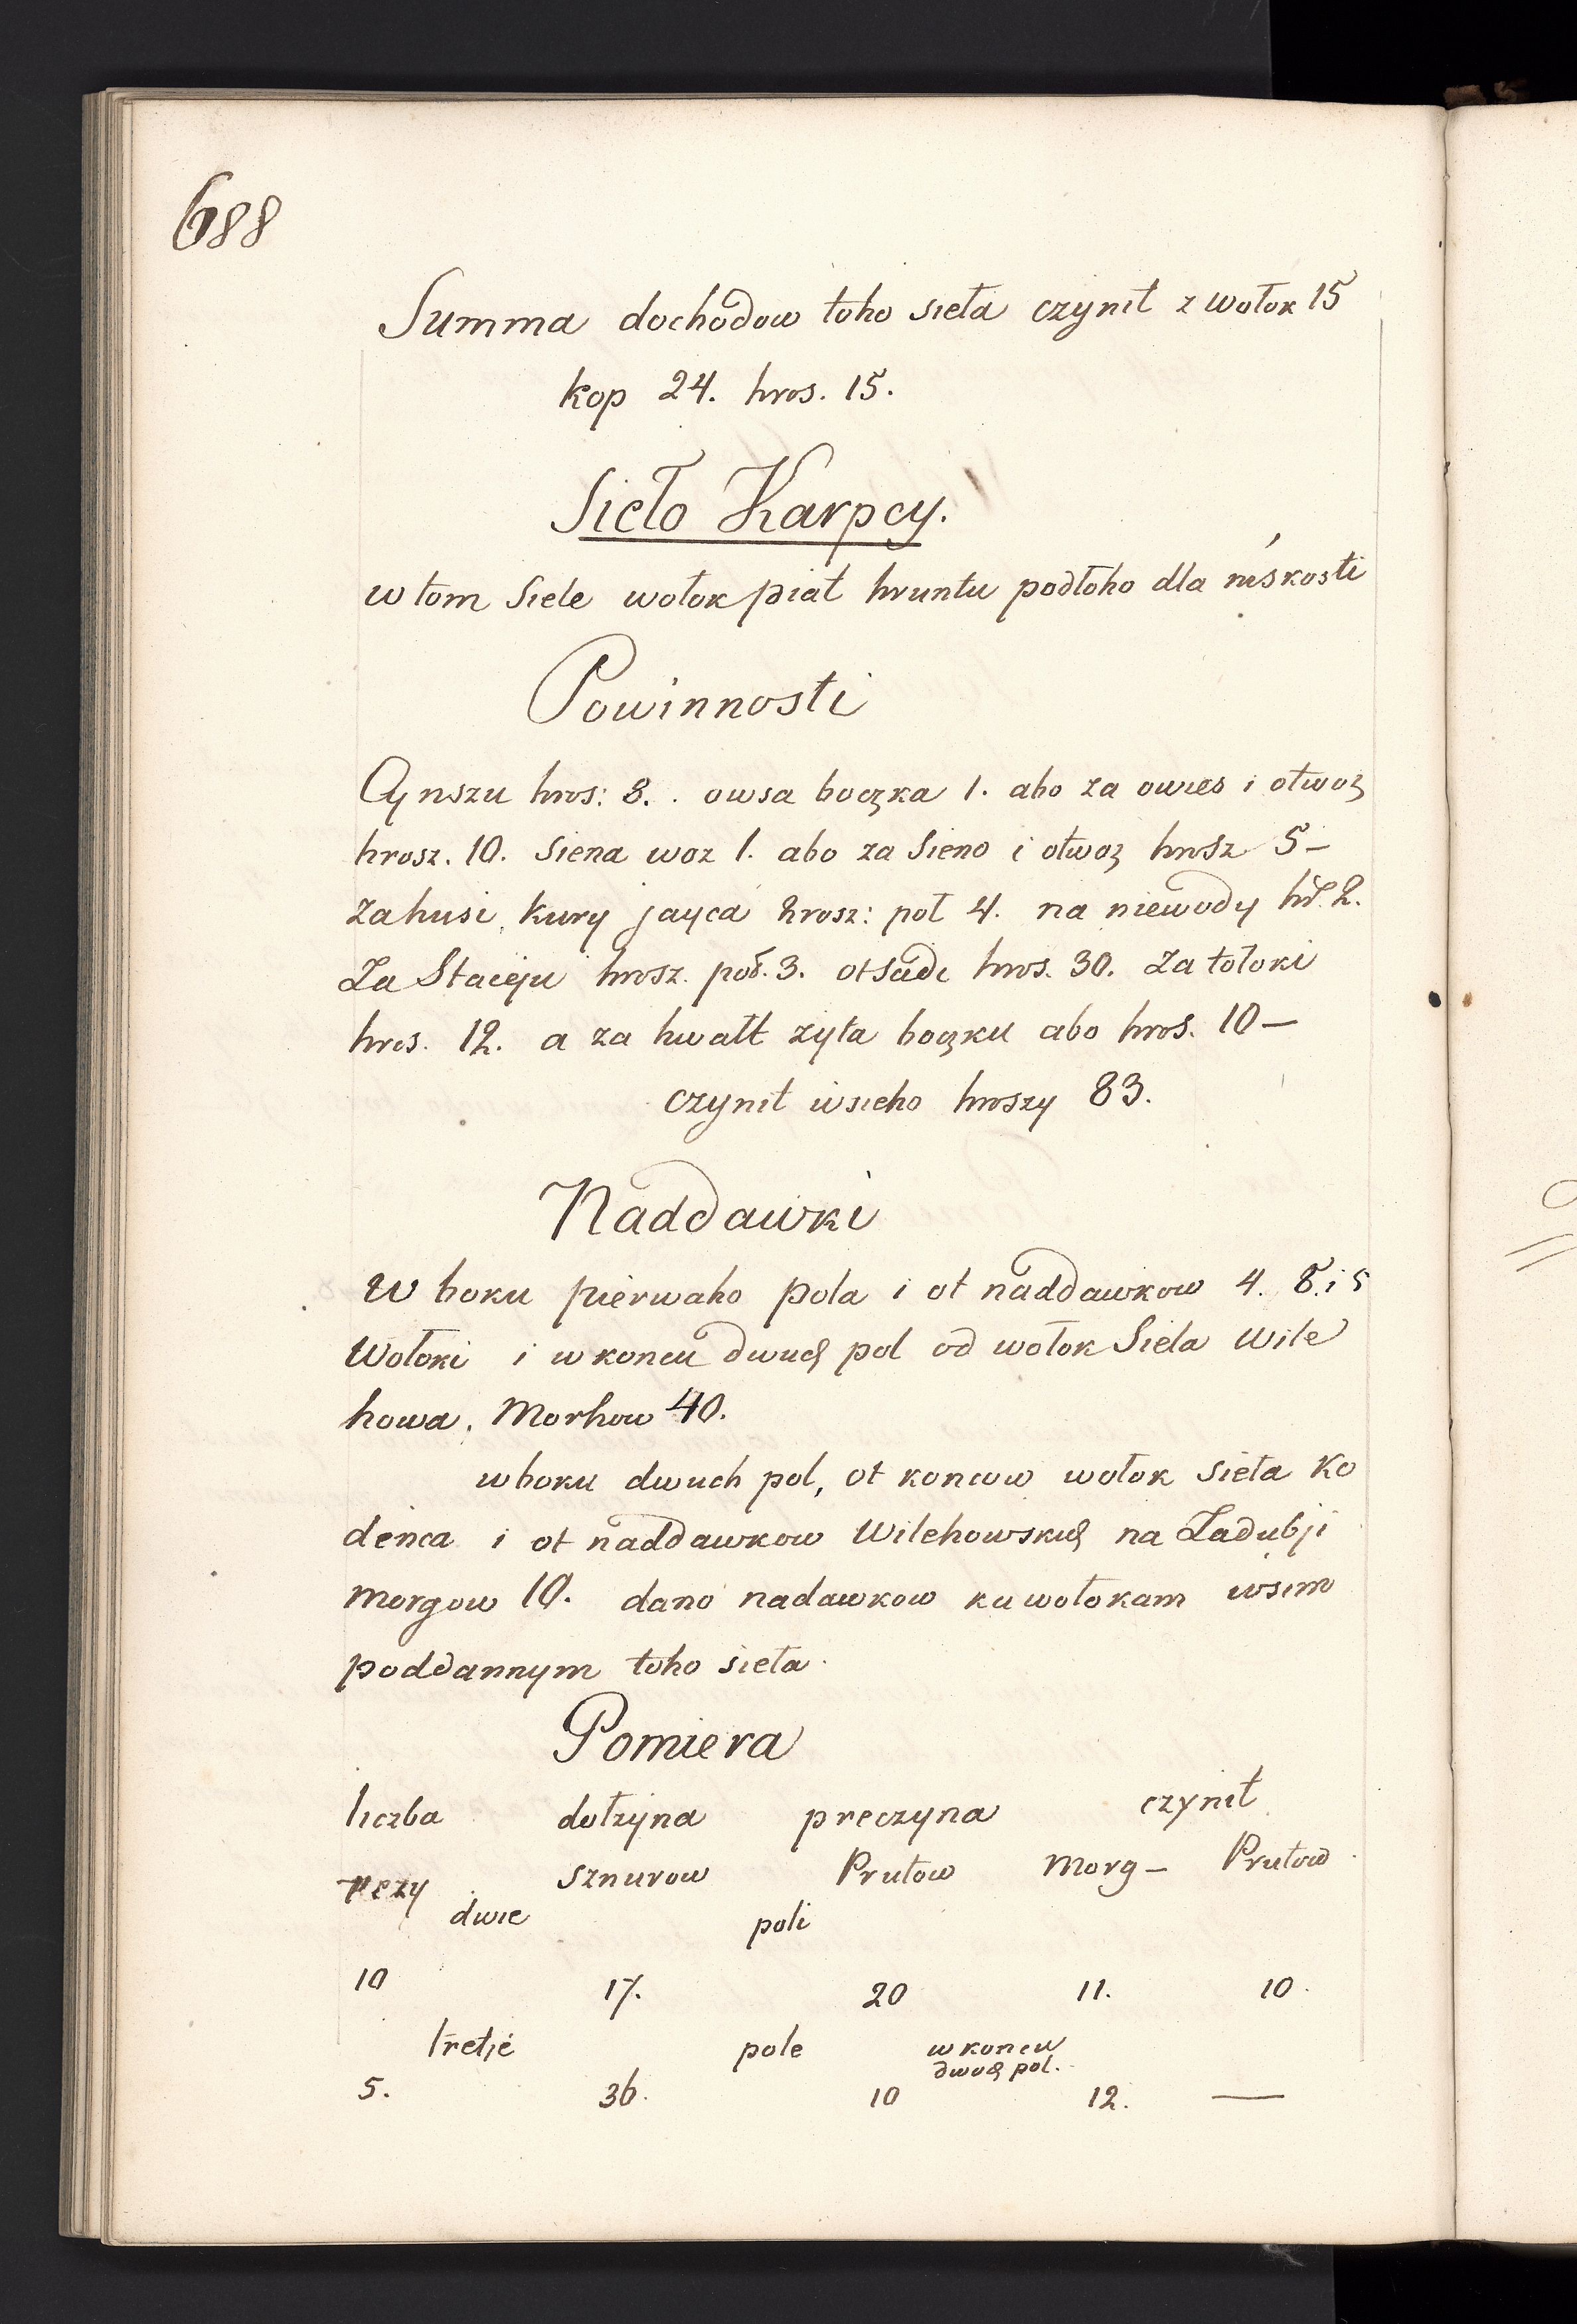 688
Summa dochodow toho sieła czynit z wołok 15
kop 24. hros. 15.
Sieło Karpcy.
w tom Siele wołok piat hruntu podłoho dla niskosti
Powinnosti
Cynszu hros: 8. . owsa boczka 1. abo za owies i otwoz
hrosz. 10. Siena woz 1. abo za Sieno i otwoz hrosz 5–
Za husi, kury jayca hrosz: poł 4. na niewody hr. 2.
Za Staceju hrosz. poł. 3. ot sadi hros. 30. Za tołoki
hros. 12. a za hwalt zyta boczku abo hros. 10–
czynit wsieho hroszy 83.
Naddawki
W boku pierwaho pola i ot naddawkow 4. 8. i 5
Wołoki i w koncu dwuch pol od wołok Sieła Wile
howa. Morhow 40.
w boku dwuch pol, ot koncow wołok sieła Ko
denca i ot naddawkow Wilehowskich na Zadubji
morgow 10. dano nadawkow ku wołokam wsim
poddannym toho sieła.
Pomiera
liczba dołzyna preczyna czynit
rezy sznurow Prutow Morg– Prutow
dwie poli
10 17. 20 11. 10.
tretie pole w koncu
dwoch pol.
5. 36. 10 12. —